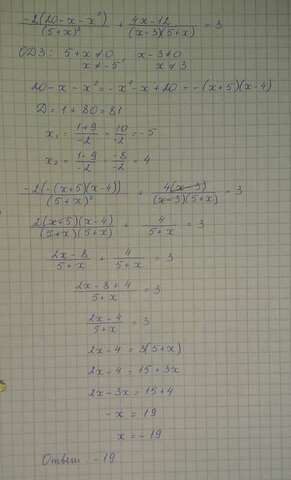 -2(20-x-x²)/(5+x)² + 4x-12/(x-3)(5+x) = 3
ОДЗ: 5+x≠0 x-3≠0
x≠-5 x≠3
20-x-x² = -x²-x+20 = -(x+5)(x-4)
D=1+80=81
x₁ = 1+9/-2 = 10/-2 = -5
x₂ = 1-9/-2 = -8/-2 = 4
-2(-(x+5)(x-4))/(5+x)² + 4(x-3)/(x-3)(5+x) = 3
2(x+5)(x-4)/(5+x)(5+x) + 4/5+x = 3
2x-8/5+x + 4/5+x = 3
2x-8+4/5+x = 3
2x-4/5+x = 3
2x-4 = 3(5+x)
2x-4 = 15+3x
2x-3x = 15+4
-x = 19
x = -19
Ответ: -19